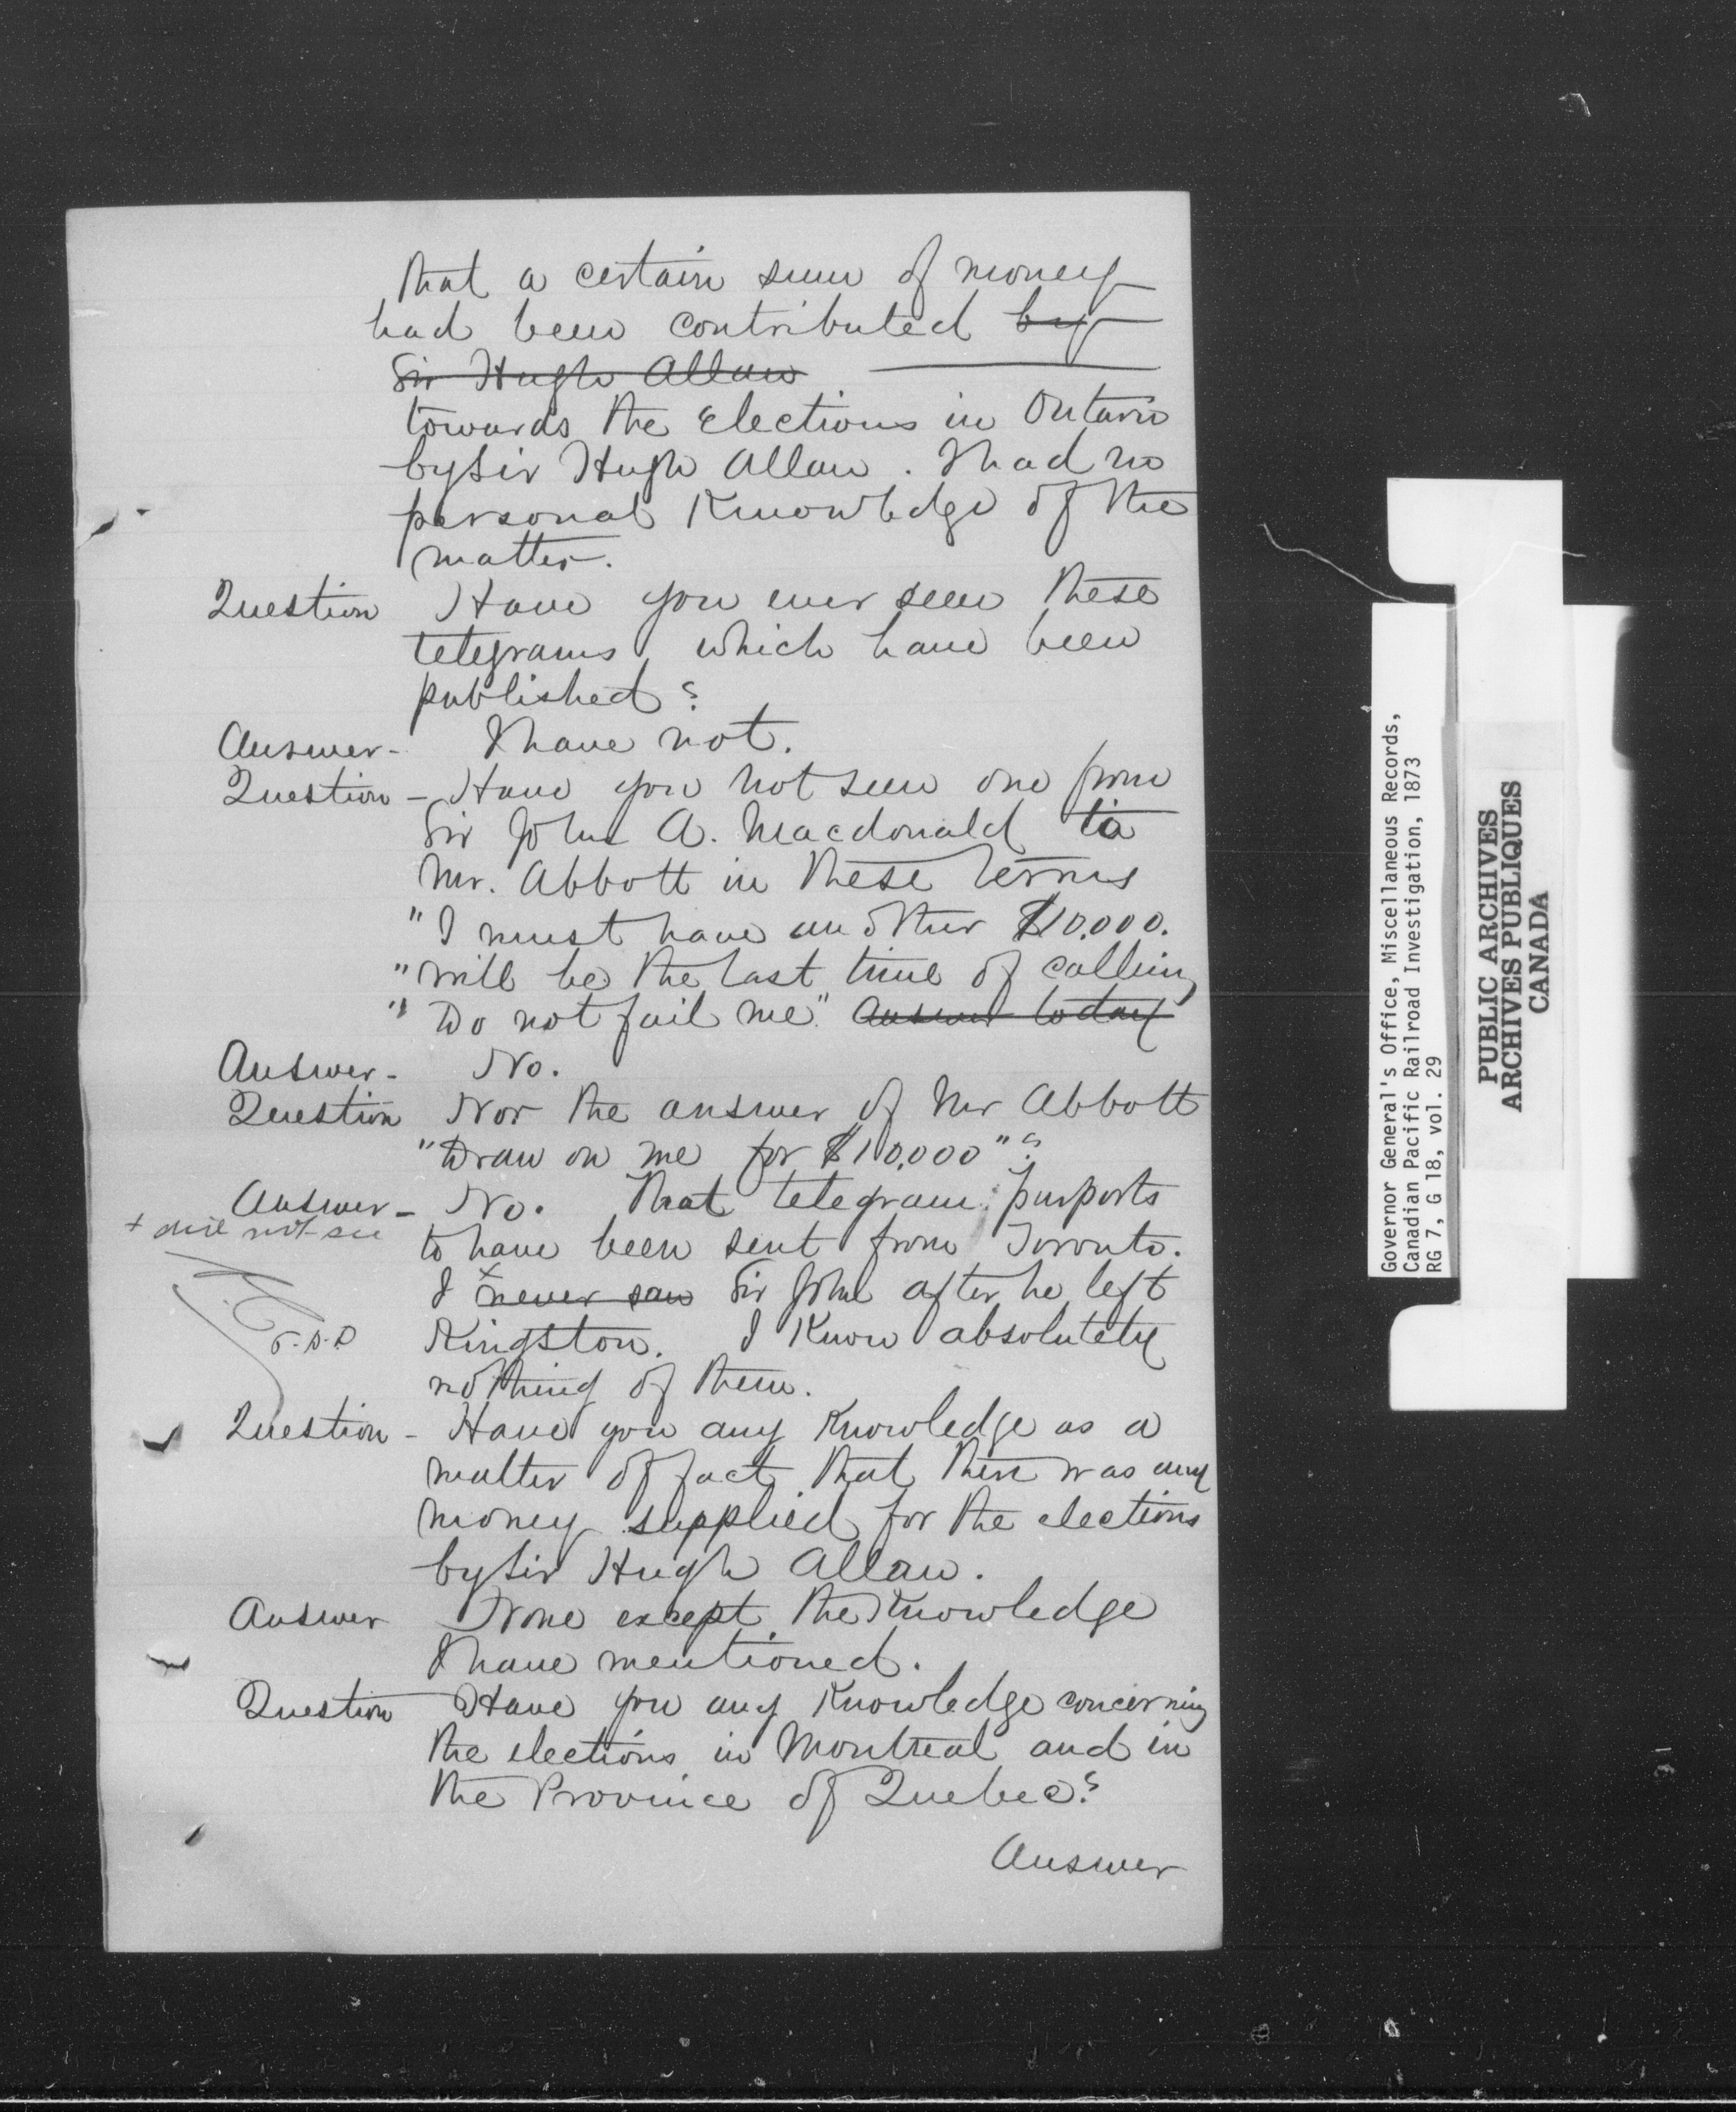 that a certain sum of money
had been contributed by
Sir Hugh Allan
towards the Elections in Ontario
by Sir Hugh Allan. I had no
personal Knowledge of the
matter.
Question Have you ever seen these
telegrams which have been
published?
Answer- I have not.
Question - Have you not seen one from
Sir John A. Macdonald to
Mr. Abbott in these terms
"I must have another $10.000.
"will be the last time of calling
"Do not fail me." Answer today
Answer- No.
Question Nor the answer of Mr Abbott
"Draw on me for $10.000"?
Answer- No. That telegram purports
+ did not see
to have been sent from Toronto.
I x never saw Sir John after he left
Kingston. I Know absolutely
nothing of them.
Question - Have you any Knowledge as a
matter of fact that there was any
money supplied for the elections
by Sir Hugh Allan.
Answer None except the Knowledge
I have mentioned.
Question Have you any Knowledge concerning
the elections in Montreal and in
the Province of Quebec?
Answer
Governor General's Office, Miscellaneous Records,
Canadian Pacific Railroad Investigation, 1873
RG 7, G 18, vol. 29
PUBLIC ARCHIVES
ARCHIVES PUBLIQUES
CANADA